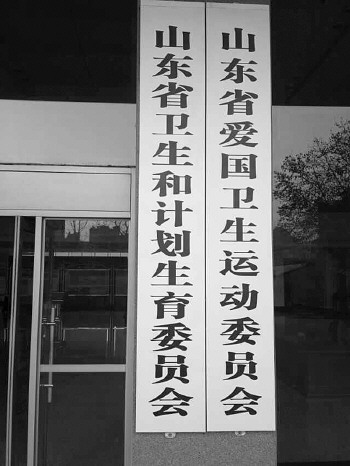 山东省爱国卫生运动委员会
山东省卫生和计划生育委员会